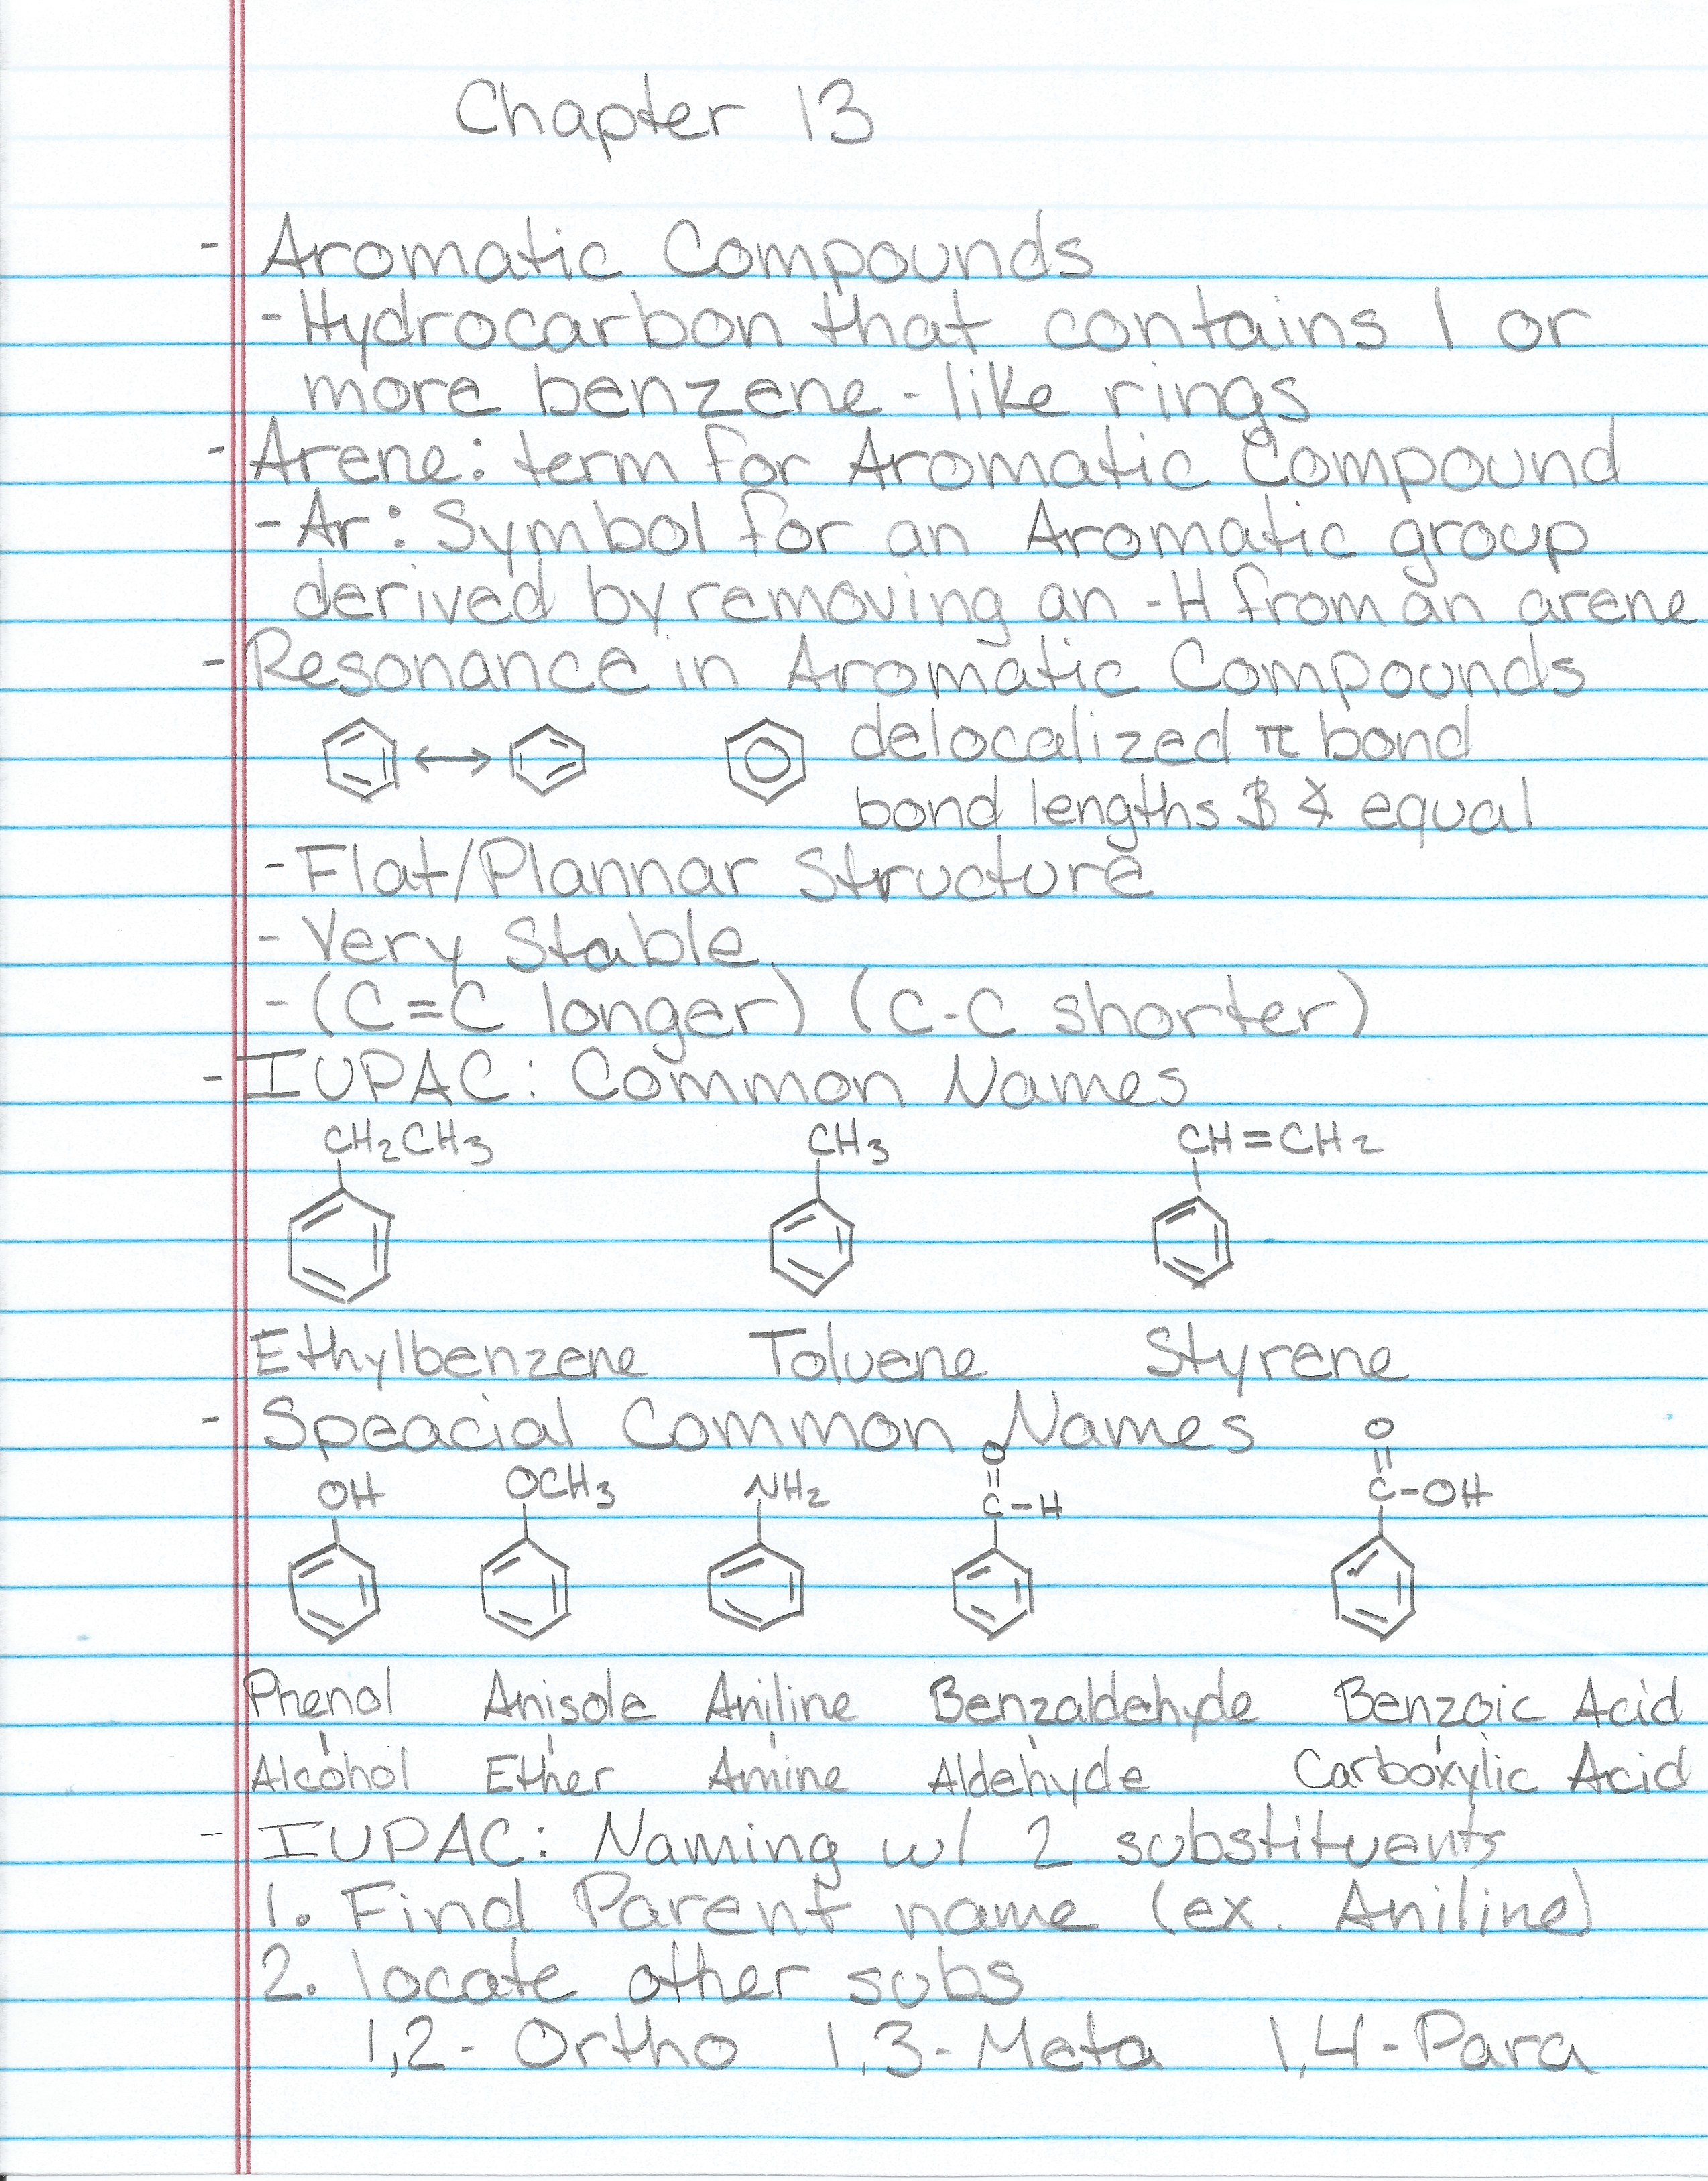 Chapter 13
- Aromatic Compounds
- Hydrocarbon that contains 1 or
more benzene-like rings
- Arene: term for Aromatic Compound
- Ar: Symbol for an Aromatic group
derived by removing an -H from an arene
- Resonance in Aromatic Compounds
delocalized π bond
bond lengths & ∡ equal
- Flat/Plannar Structure
- Very Stable
- (C=C longer) (C-C shorter)
- IUPAC: Common Names
CH2CH3 CH3 CH=CH2
Ethylbenzene Toluene Styrene
- Speacial Common Names
OH OCH3 NH2 O=C-H O=C-OH
Phenol Anisole Aniline Benzaldehyde Benzoic Acid
Alcohol Ether Amine Aldehyde Carboxylic Acid
- IUPAC: Naming w/ 2 substituents
1. Find Parent name (ex. Aniline)
2. locate other subs
1,2- Ortho 1,3-Meta 1,4-Para